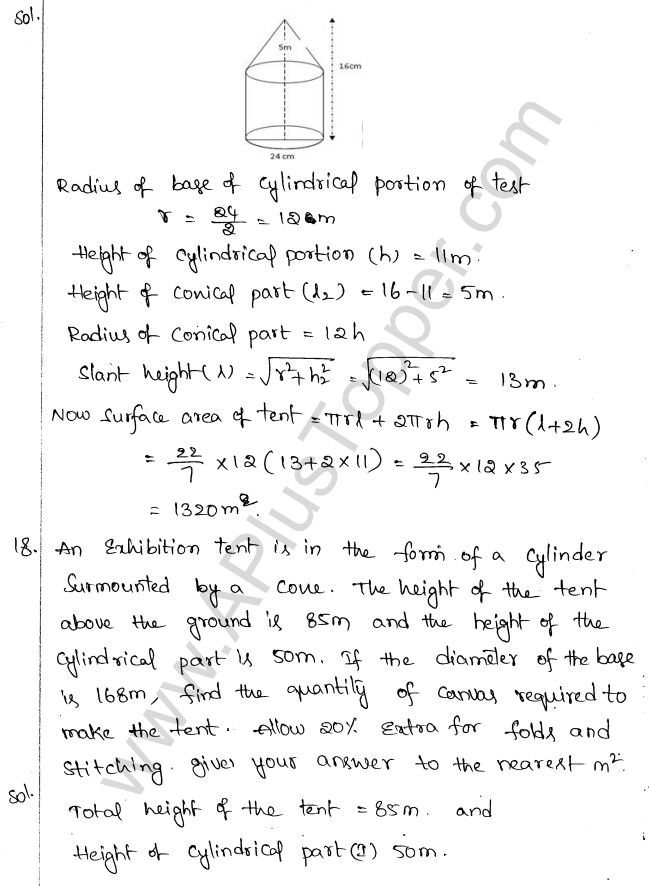 Sol.
5m
16cm
24 cm
Radius of base of cylindrical portion of test
r = 24/2 = 12m
Height of cylindrical portion (h) = 11m.
Height of conical part (h2) = 16-11 = 5m.
Radius of Conical part = 12h
Slant height (l) = √r²+h2² = √(12)²+5² = 13m.
Now Surface area of tent = πrl + 2πrh = πr(l+2h)
= 22/7 ×12 (13+2×11) = 22/7 ×12×35
= 1320m².
18. An Exhibition tent is in the form of a cylinder
Surmounted by a cone. The height of the tent
above the ground is 85m and the height of the
cylindrical part is 50m. If the diameter of the base
is 168m, find the quantity of canvas required to
make the tent. Allow 20% Extra for folds and
stitching. gives your answer to the nearest m².
Sol. Total height of the tent = 85m. and
Height of cylindrical part 50m.
www.APlusTopper.com